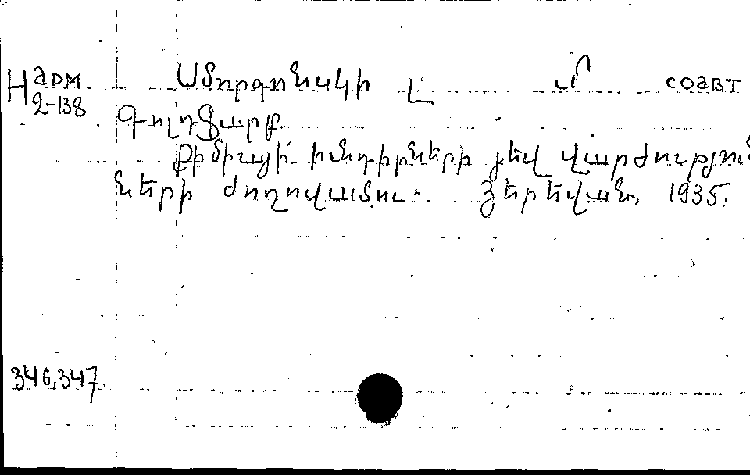 Нарм
2-138
Սմորգոնսկի Լ Մ соавт
Գոլդֆարբ
Քիմիայի խնդիրների յեվ վարժություն
ների ժողովածու. Յերեվան, 1935.
346,347